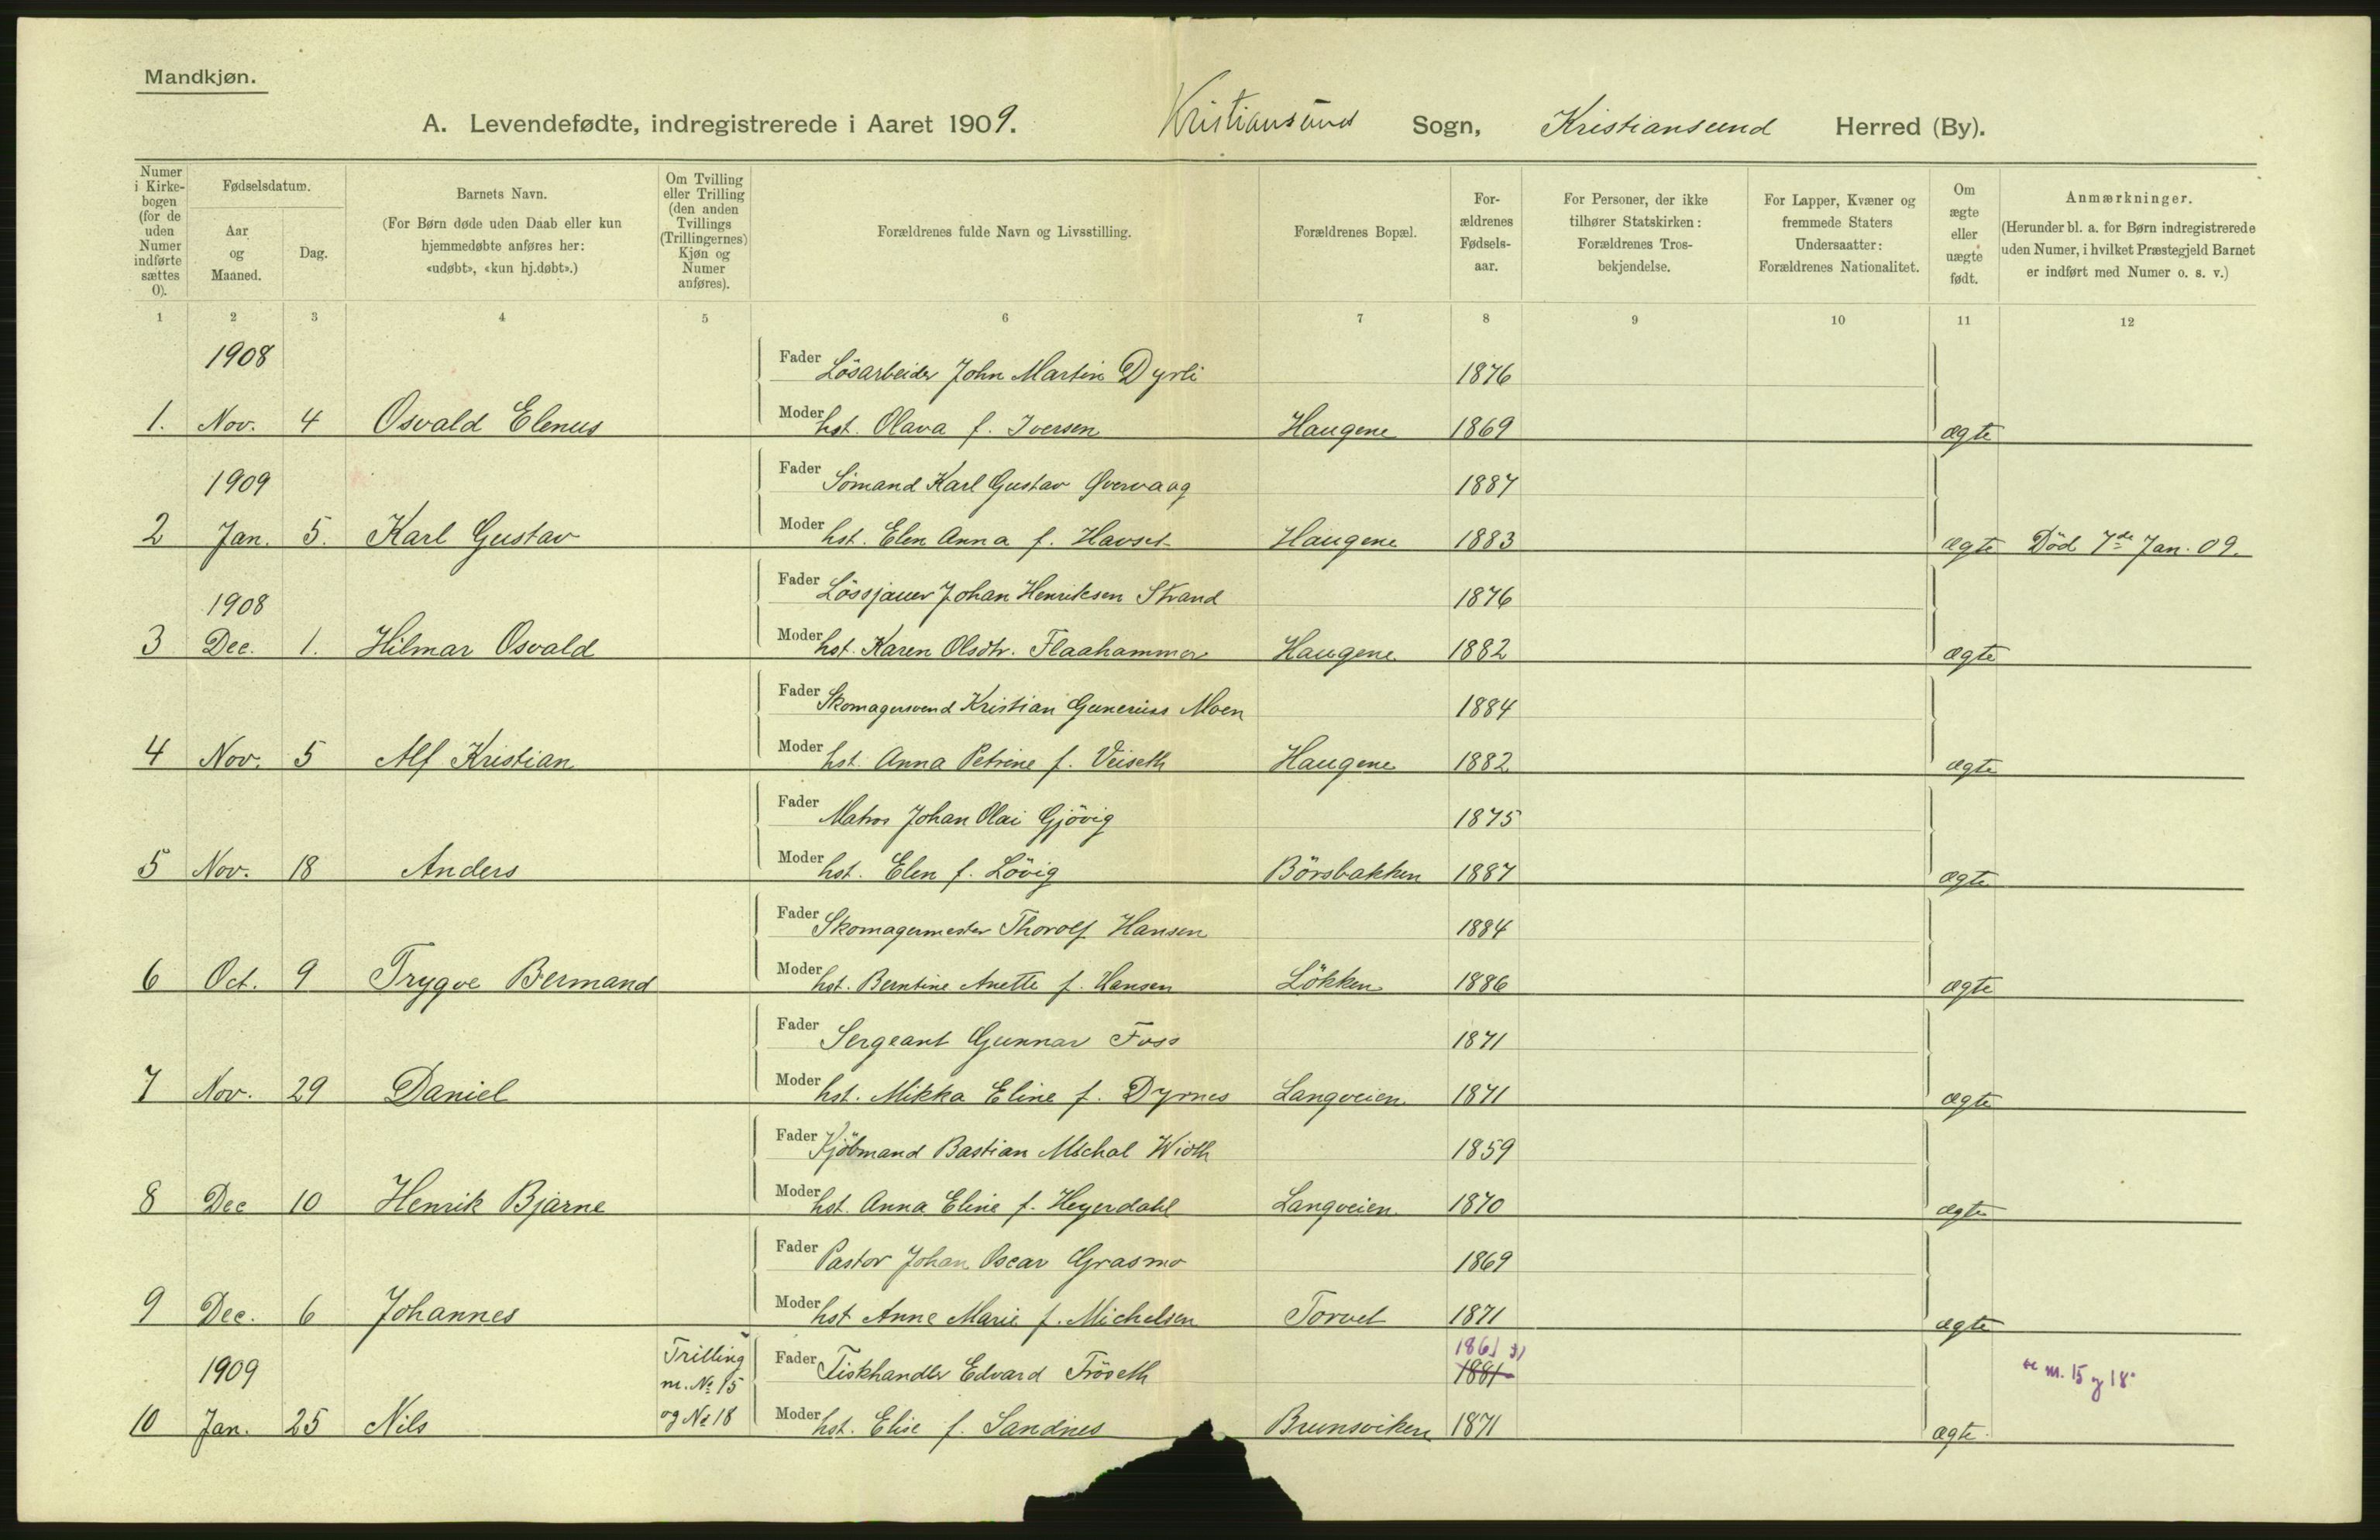 Mandkjøn.
A. Levendefødte, indregistrerede i Aaret 1909. Kristiansund Sogn, Kristiansund Herred (By).
Numer i Kirkebogen (for de uden Numer indførte sættes 0).
Fødselsdatum.
Aar og Maaned.
Dag.
Barnets Navn.
(For Børn døde uden Daab eller kun hjemmedøbte anføres her: «udøbt», «kun hj.døbt».)
Om Tvilling eller Trilling (den anden Tvillings (Trillingernes) Kjøn og Numer anføres).
Forældrenes fulde Navn og Livsstilling.
Forældrenes Bopæl.
Forældrenes Fødselsaar.
For Personer, der ikke tilhører Statskirken: Forældrenes Trosbekjendelse.
For Lapper, Kvæner og fremmede Staters Undersaatter: Forældrenes Nationalitet.
Om ægte eller uægte født.
Anmærkninger.
(Herunder bl. a. for Børn indregistrerede uden Numer, i hvilket Præstegjeld Barnet er indført med Numer o. s. v.)
1 2 3 4 5 6 7 8 9 10 11 12
1908 Fader Lösarbeider John Martin Dyrli 1876
1. Nov. 4 Osvald Elenus Moder hst. Olava f. Iversen Haugene 1869 ægte
1909 Fader Sömand Karl Gustav Qvervaag 1887
2 Jan. 5. Karl Gustav Moder hst. Elen Anna f. Havset Haugene 1883 ægte Död 7de Jan. 09.
1908 Fader Lössjauer Johan Henriksen Strand 1876
3 Dec. 1. Hilmar Osvald Moder hst. Karen Olsdtr. Flaahammer Haugene 1882 ægte
Fader Skomagersvend Kristian Gunerius Moen 1884
4 Nov. 5 Alf Kristian Moder hst. Anna Petrine f. Veiseth Haugene 1882 ægte
Fader Matros Johan Olai Gjövig 1875
5 Nov. 18 Anders Moder hst. Elen f. Lövig Börsbakken 1887 ægte
Fader Skomagermester Thorolf Hansen 1884
6 Oct. 9 Trygve Bermand Moder hst. Berntine Anette f. Hansen Lökken 1886 ægte
Fader Sergeant Gunnar Foss 1871
7 Nov. 29 Daniel Moder hst. Mikka Eline f. Dyrnes Langveien 1871 ægte
Fader Kjöbmand Bastian Michal Wirth 1859
8 Dec 10 Henrik Bjarne Moder hst. Anna Eline f. Heyerdahl Langveien 1870 ægte
Fader Pastor Johan Oscar Grasmo 1869
9 Dec. 6 Johannes Moder hst Anne Marie f. Michelsen Torvet 1871 ægte
1909 Trilling m. No 15 Fader Fiskhandler Edvard Fröseth 1861 1881 m. 15 og 18
10 Jan. 25 Nils og No 18 Moder hst. Elise f. Sandnes Brunsviken 1871 ægte